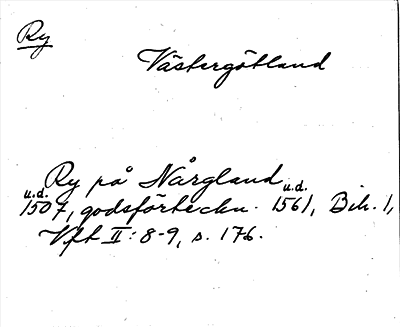 Ry
Västergötland
Ry på Nårgland
u.d. u.d.
1507, godsförteckn. 1561, Bih. 1,
Vft II: 8-9, s. 176.